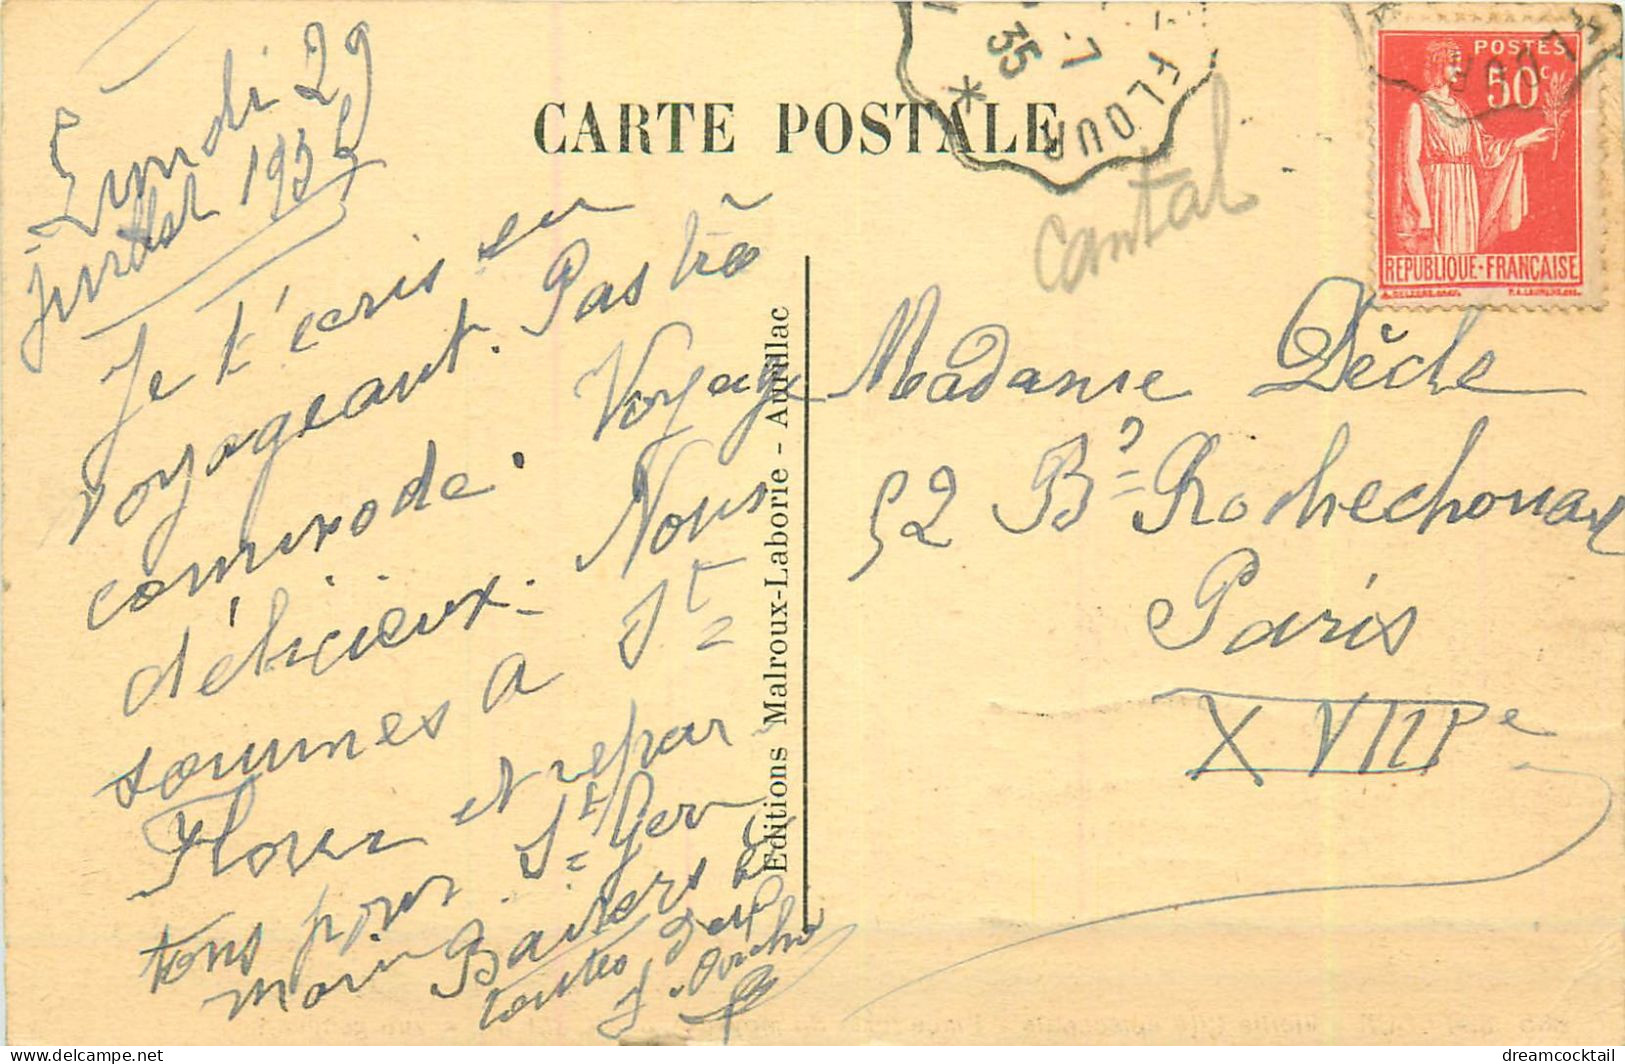 Lundi 29
juillet 1935
Je t'écris en
voyageant. Pas très
commode. Voyage
délicieux. Nous
sommes a St
Flour et repar
tons pour St Ger
main Baisers à
toutes deux
CARTE POSTALE
7
35
FLOUR
*
Cantal
POSTES
50c
REPUBLIQUE·FRANÇAISE
Editions Malroux-Laborie - Aurillac
Madame Dèche
52 Bd Rochechouart
Paris
XVIIIe
delcampe.net
dreamcocktail